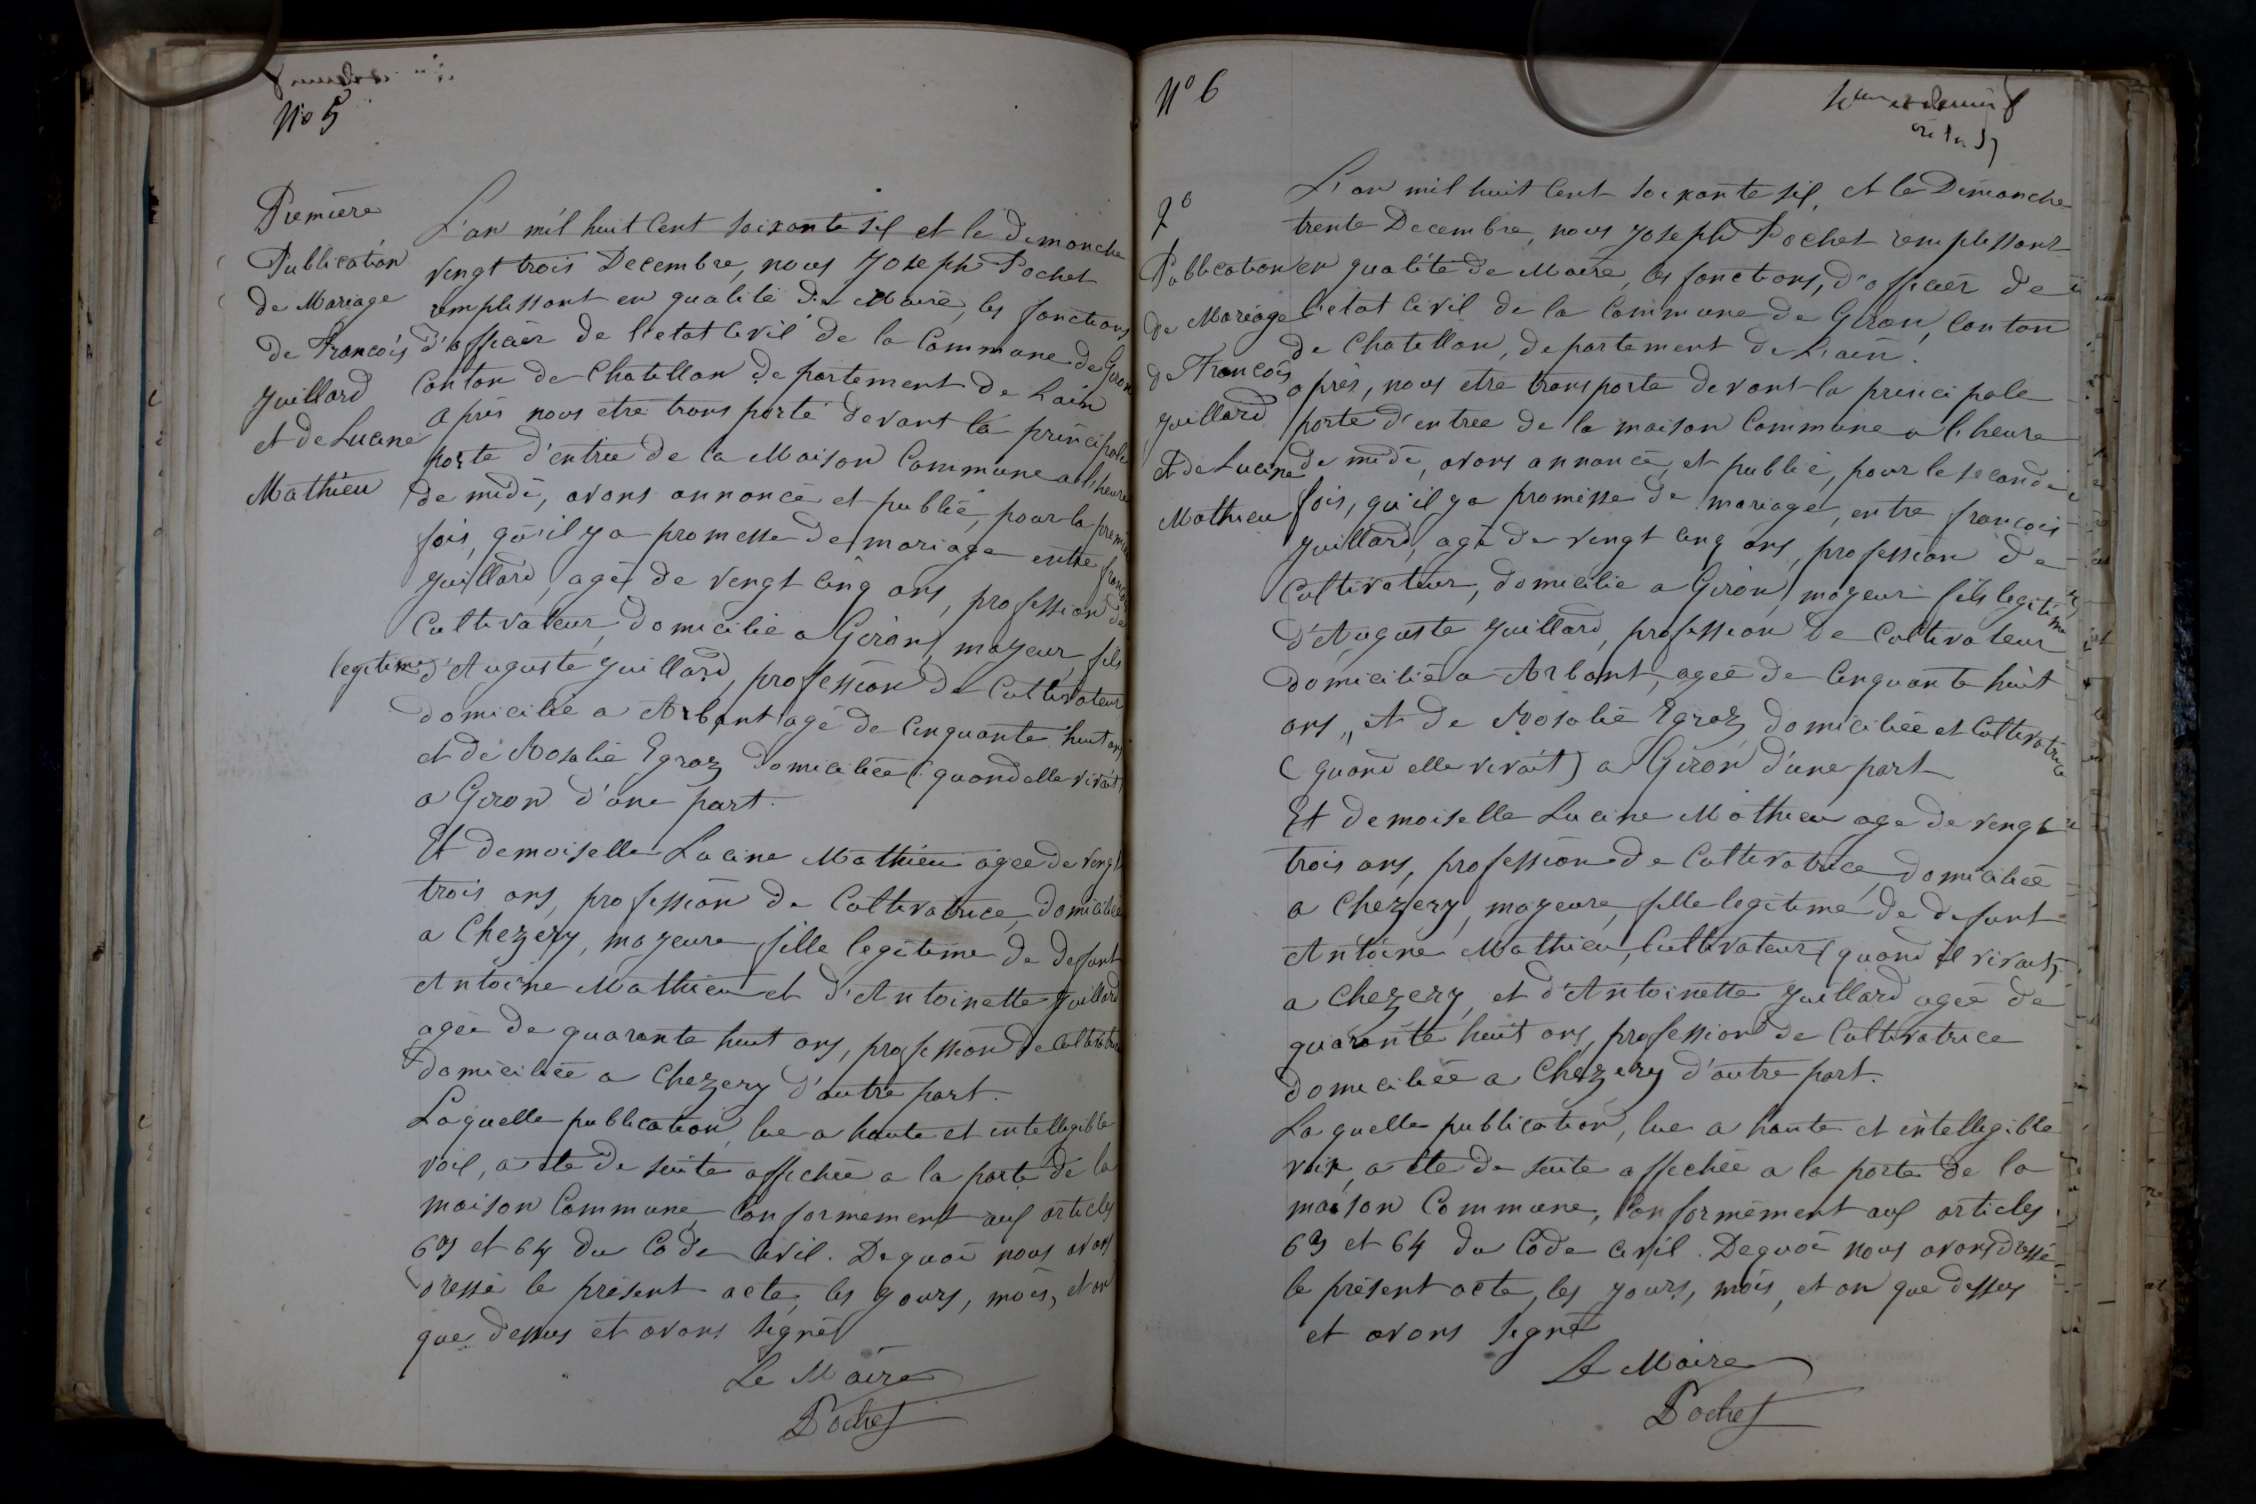 No 5
Première
Publication
de Mariage
de François
Juillard
et de Lucine
Mathieu
L'an mil huit cent soixante six et le dimanche
vengt trois Decembre, nous Joseph Pochet
remplissant en qualité de Maire, les fonctions
d'officier de l'etat Civil de la Commune de Giron
Canton de Chatillon departement de Lain
après nous etre transporté devant la principale
porte d'entrée de la Maison Commune a l'heure
de midi, avons annoncé et publié, pour la premiere
fois, qu'il y a promesse de mariage entre francois
Juillard, agé de vengt cinq ans, profession de
Cultivateur, domicilié a Giron, mayeur, fils
legitime d'Auguste Juillard, profession de Cultivateur
domicilié a Arbant agé de Cinquante huit ans
et de Rosalie Egraz domiciliée (quand elle vivait)
a Giron d'une part.
Et demoiselle Lucine Mathieu agée de vengt
trois ans, profession de Cultivatrice, domiciliée
a Chezery, mayeure fille legitime de defunt
Antoine Mathieu et d'Antoinette Juillard
agée de quarante huit ans, profession de Cultivatrice
domiciliée a Chezery d'autre part.
Laquelle publication, lue a haute et intellegible
voix, a ete de suite affichée a la porte de la
maison Commune, Conformement aux articles
63 et 64 du Code Civil. De quoi nous avons
dressé le présent acte, les jours, mois, et an
que dessus et avons signé
Le Maire
Pochet
No 6
2e
Publication
de Mariage
de François
Juillard
et de Lucine
Mathieu
L'an mil huit Cent soixante six, et le Dimanche
trente Decembre, nous Joseph Pochet remplissant
en qualité de Maire, les fonctions, d'officier de
l'etat Civil de la Commune de Giron, Canton
de Chatillon, departement de L'ain.
après, nous etre transporte devant la principale
porte d'entree de la maison Commune a l'heure
de midi, avons annoncé, et publié, pour la seconde
fois, qu'il y a promesse de mariage, entre francois
Juillard, agé de vengt cinq ans, profession de
Cultivateur, domicilié a Giron, mayeur fils legitime
d'Auguste Juillard, profession de Cultivateur
domicilié a Arbant, ageé de Cinquante huit
ans, et de Rosalie Egraz domiciliée et Cultivatrice
(quand elle vivait) a Giron d'une part
Et demoiselle Lucine Mathieu age de vengt
trois ans, profession de Cultivatrice domiciliée
a Chezery, mayeure, fille legitime de defunt
Antoine Mathieu, Cultivateur (quand il vivait)
a Chezery, et d'Antoinette Juillard ageé de
quarante huit ans, profession de Cultivatrice
domiciliée a Chezery d'autre part.
La quelle publication, lue a haute et intellegible
voix, a ete de suite affichée a la porte de la
maison Commune, Conformément aux articles
63 et 64 du Code Civil. De quoi nous avons dressé
le présent acte, les jours, mois, et an que dessus
et avons signé
Le Maire
Pochet